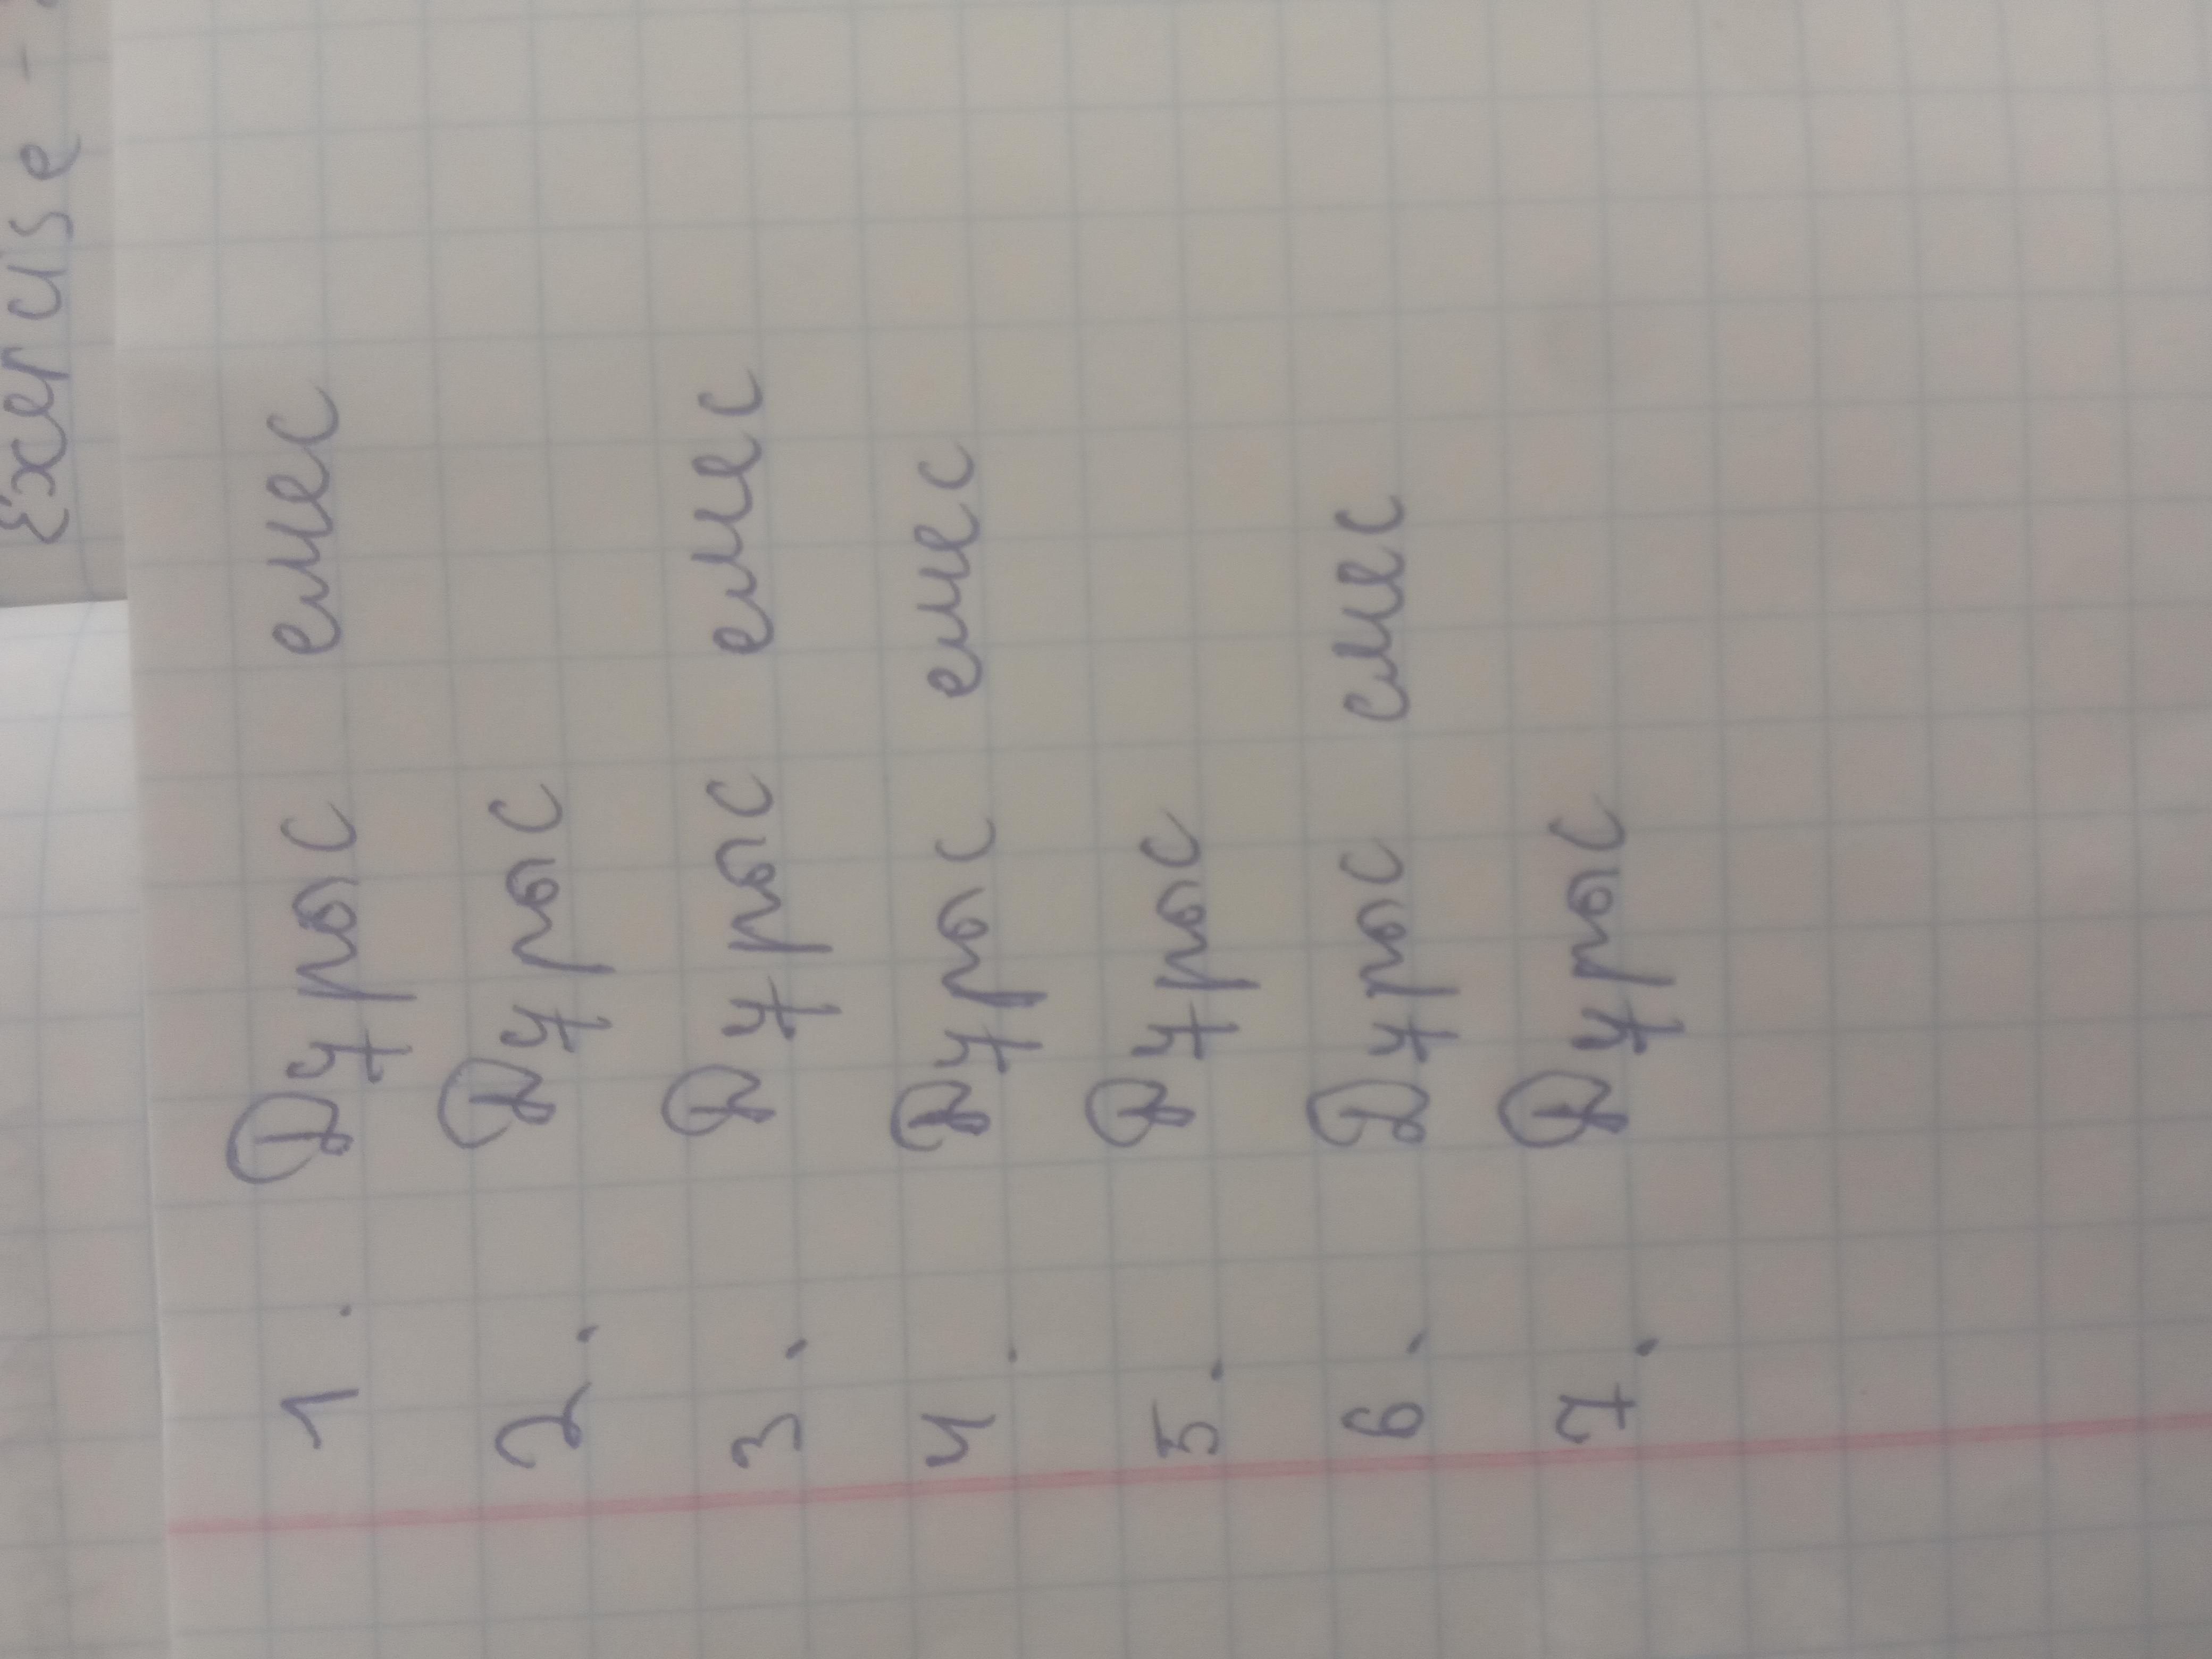 Exercise -
1. Дұрыс емес
2. Дұрыс
3. Дұрыс емес
4. Дұрыс емес
5. Дұрыс
6. Дұрыс емес
7. Дұрыс